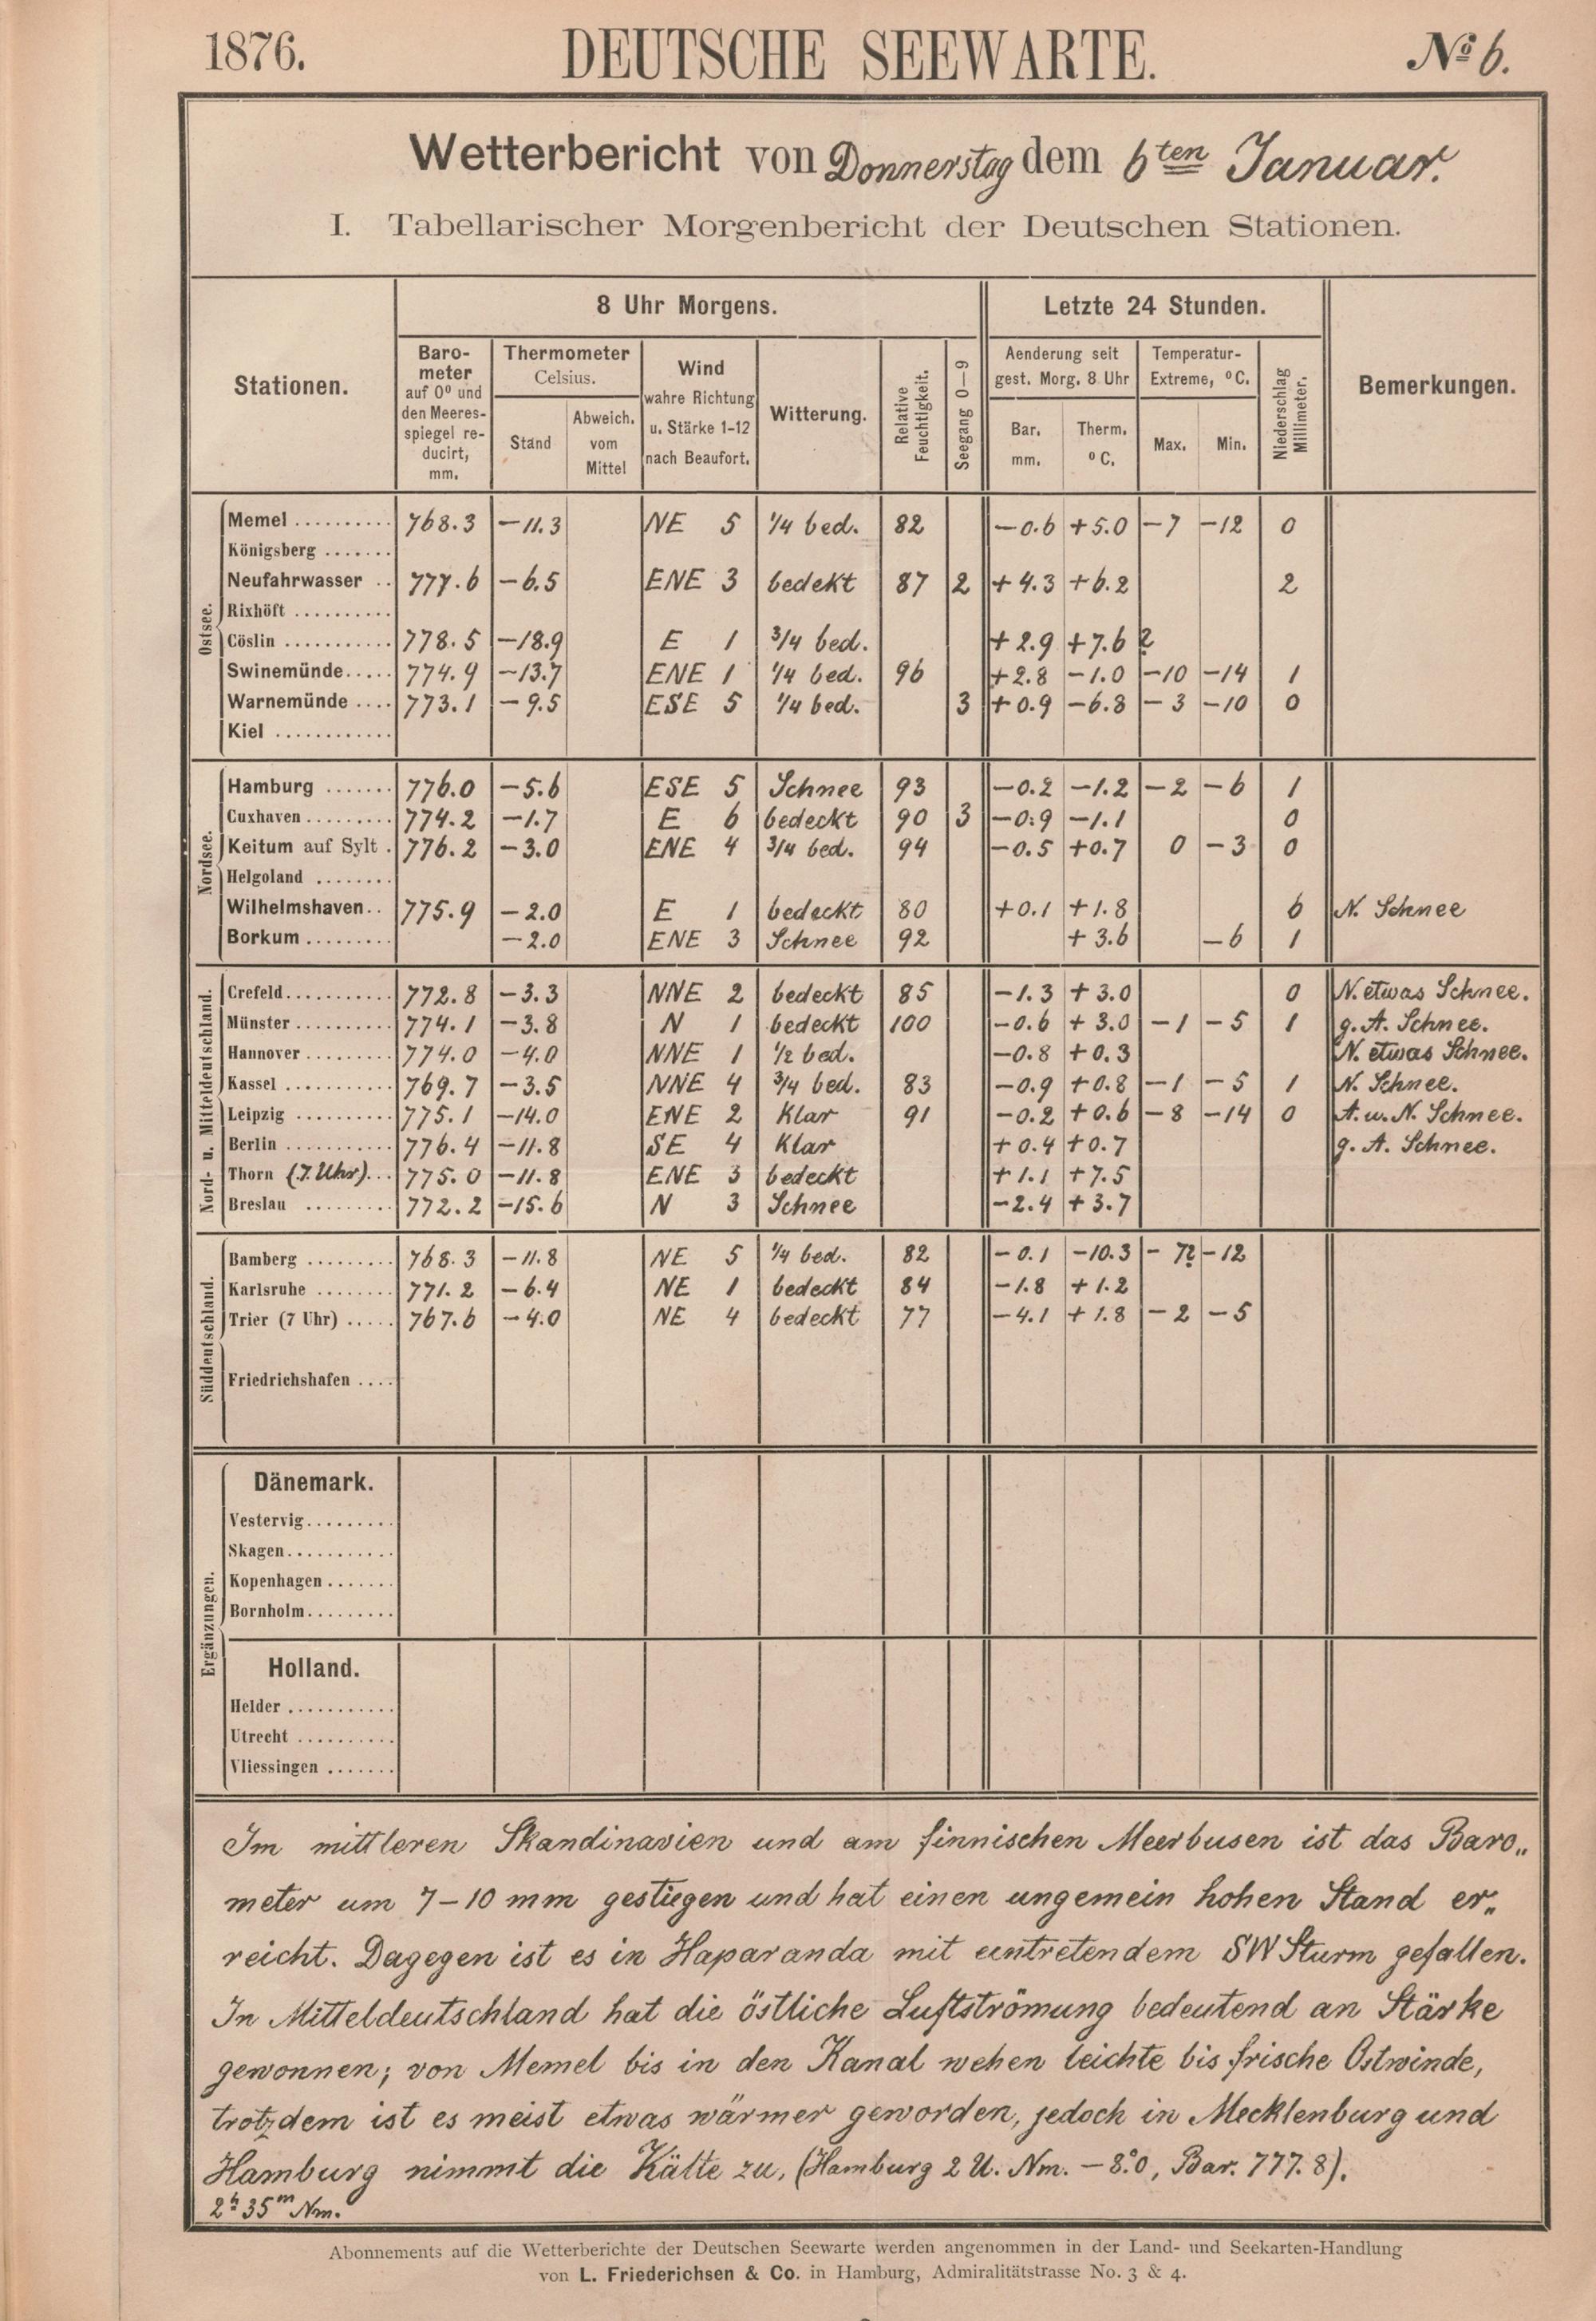 1876. DEUTSCHE SEEWARTE. No 6.
Wetterbericht von Donnerstag dem 6ten Januar.
I. Tabellarischer Morgenbericht der Deutschen Stationen.
Stationen. 8 Uhr Morgens. Letzte 24 Stunden. Bemerkungen.
Barometer auf 0° und den Meeresspiegel reducirt, mm.
Thermometer Celsius.
Stand
Abweich. vom Mittel
Wind wahre Richtung u. Stärke 1-12 nach Beaufort.
Witterung.
Relative Feuchtigkeit.
Seegang 0—9
Aenderung seit gest. Morg. 8 Uhr
Bar. mm.
Therm. °C.
Temperatur-Extreme, °C.
Max.
Min.
Niederschlag Millimeter.
Ostsee.
Memel 768.3 −11.3 NE 5 1/4 bed. 82 −0.6 +5.0 −7 −12 0
Königsberg
Neufahrwasser 777.6 −6.5 ENE 3 bedekt 87 2 +4.3 +6.2 2
Rixhöft
Cöslin 778.5 −18.9 E 1 3/4 bed. +2.9 +7.6 ?
Swinemünde 774.9 −13.7 ENE 1 1/4 bed. 96 +2.8 −1.0 −10 −14 1
Warnemünde 773.1 −9.5 ESE 5 1/4 bed. 3 +0.9 −6.8 −3 −10 0
Kiel
Nordsee.
Hamburg 776.0 −5.6 ESE 5 Schnee 93 −0.2 −1.2 −2 −6 1
Cuxhaven 774.2 −1.7 E 6 bedeckt 90 3 −0.9 −1.1 0
Keitum auf Sylt 776.2 −3.0 ENE 4 3/4 bed. 94 −0.5 +0.7 0 −3 0
Helgoland
Wilhelmshaven 775.9 −2.0 E 1 bedeckt 80 +0.1 +1.8 6 N. Schnee
Borkum −2.0 ENE 3 Schnee 92 +3.6 −6 1
Nord- u. Mitteldeutschland.
Crefeld 772.8 −3.3 NNE 2 bedeckt 85 −1.3 +3.0 0 N. etwas Schnee.
Münster 774.1 −3.8 N 1 bedeckt 100 −0.6 +3.0 −1 −5 1 g. A. Schnee.
Hannover 774.0 −4.0 NNE 1 1/2 bed. −0.8 +0.3 N. etwas Schnee.
Kassel 769.7 −3.5 NNE 4 3/4 bed. 83 −0.9 +0.8 −1 −5 1 N. Schnee.
Leipzig 775.1 −14.0 ENE 2 Klar 91 −0.2 +0.6 −8 −14 0 A. u. N. Schnee.
Berlin 776.4 −11.8 SE 4 Klar +0.4 +0.7 g. A. Schnee.
Thorn (7 Uhr) 775.0 −11.8 ENE 3 bedeckt +1.1 +7.5
Breslau 772.2 −15.6 N 3 Schnee −2.4 +3.7
Süddeutschland.
Bamberg 768.3 −11.8 NE 5 1/4 bed. 82 −0.1 −10.3 −7? −12
Karlsruhe 771.2 −6.4 NE 1 bedeckt 84 −1.8 +1.2
Trier (7 Uhr) 767.6 −4.0 NE 4 bedeckt 77 −4.1 +1.8 −2 −5
Friedrichshafen
Ergänzungen.
Dänemark.
Vestervig
Skagen
Kopenhagen
Bornholm
Holland.
Helder
Utrecht
Vliessingen
Im mittleren Skandinavien und am finnischen Meerbusen ist das Baro„
meter um 7–10 mm gestiegen und hat einen ungemein hohen Stand er„
reicht. Dagegen ist es in Haparanda mit eintretendem SW Sturm gefallen.
In Mitteldeutschland hat die östliche Luftströmung bedeutend an Stärke
gewonnen; von Memel bis in den Kanal wehen leichte bis frische Ostwinde,
trotzdem ist es meist etwas wärmer geworden, jedoch in Mecklenburg und
Hamburg nimmt die Kälte zu, (Hamburg 2 U. Nm. −8.°0, Bar. 777.8).
2h 35m Nm.
Abonnements auf die Wetterberichte der Deutschen Seewarte werden angenommen in der Land- und Seekarten-Handlung
von L. Friederichsen & Co. in Hamburg, Admiralitätstrasse No. 3 & 4.